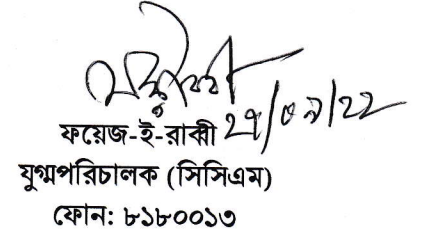 ফয়েজ-ই-রাব্বী
যুগ্মপরিচালক (সিসিএম)
ফোন: ৮১৮০০১৩